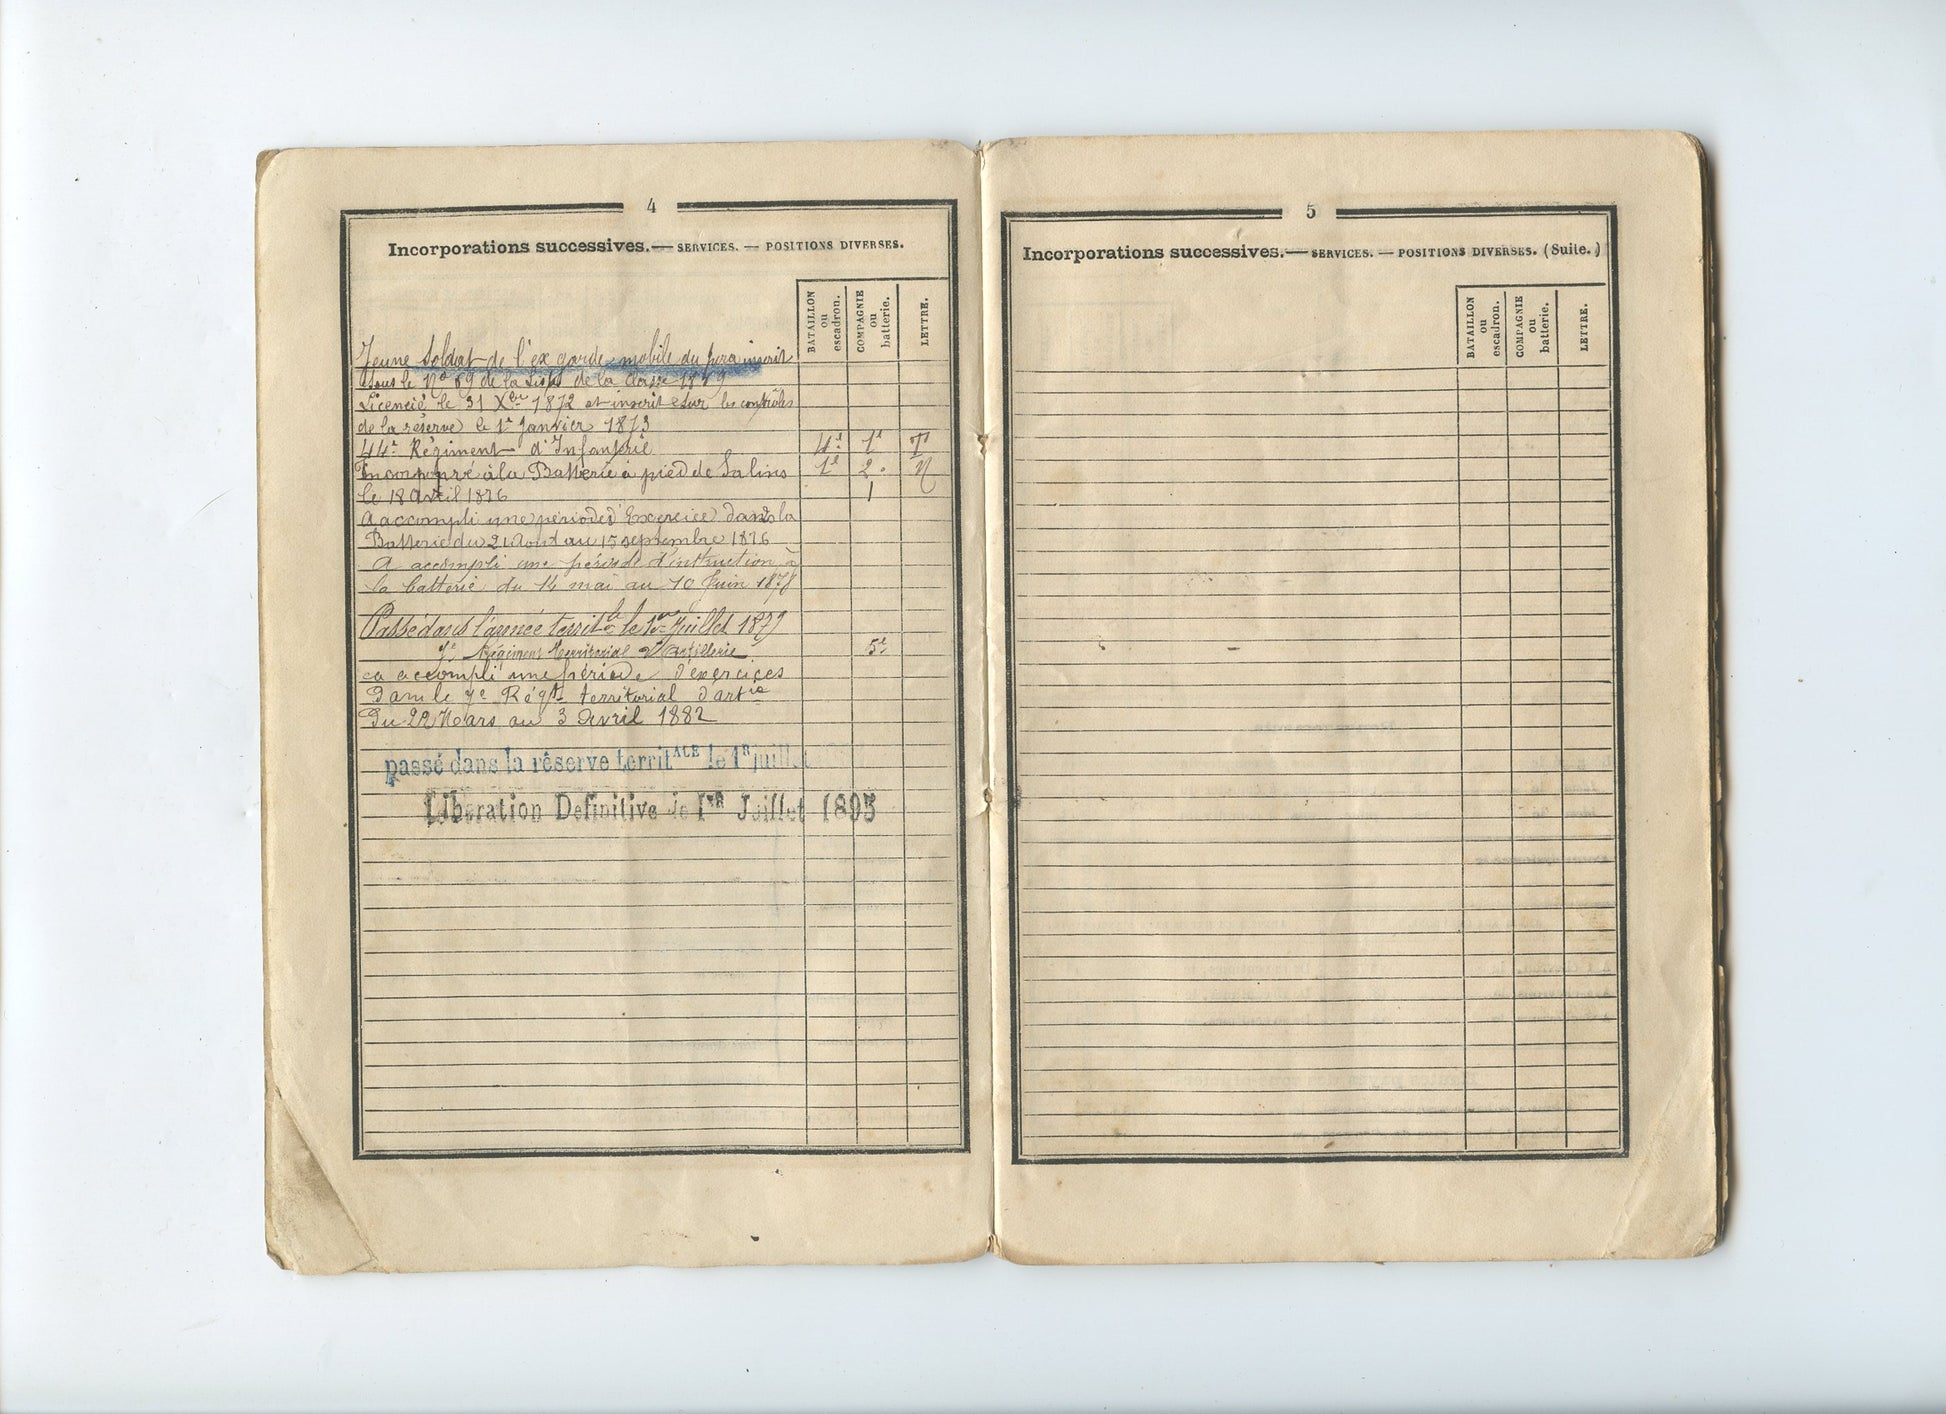 4
Incorporations successives. — SERVICES. — POSITIONS DIVERSES.
BATAILLON ou escadron.
COMPAGNIE ou batterie.
LETTRE.
Jeune Soldat de l'ex garde mobile du Jura inscrit
sous le N° 69 de la Liste de la classe
Licencié le 31 Xbre 1872 et inscrit sur les contrôles
de la réserve le 1er Janvier 1873
44e Régiment d'Infanterie 4e 1e T
Incorporé à la Batterie à pied de Salins 1e 2e N
le 18 Avril 1876 1
A accompli une période d'Exercice dans la
Batterie du 21 Aout au 15 septembre 1876
A accompli une période d'instruction à
la batterie du 14 mai au 10 Juin 1878
Passé dans l'armée territle le 1er Juillet 1879
7e Régiment territorial d'Artillerie 5e
a accompli une période d'exercices
Dans le 7e Régt territorial d'artie
Du 22 Mars au 3 Avril 1882
passé dans la réserve territALE le 1R juillet
Libération Définitive le 1ER Juillet 1895
5
Incorporations successives. — SERVICES. — POSITIONS DIVERSES. (Suite.)
BATAILLON ou escadron.
COMPAGNIE ou batterie.
LETTRE.